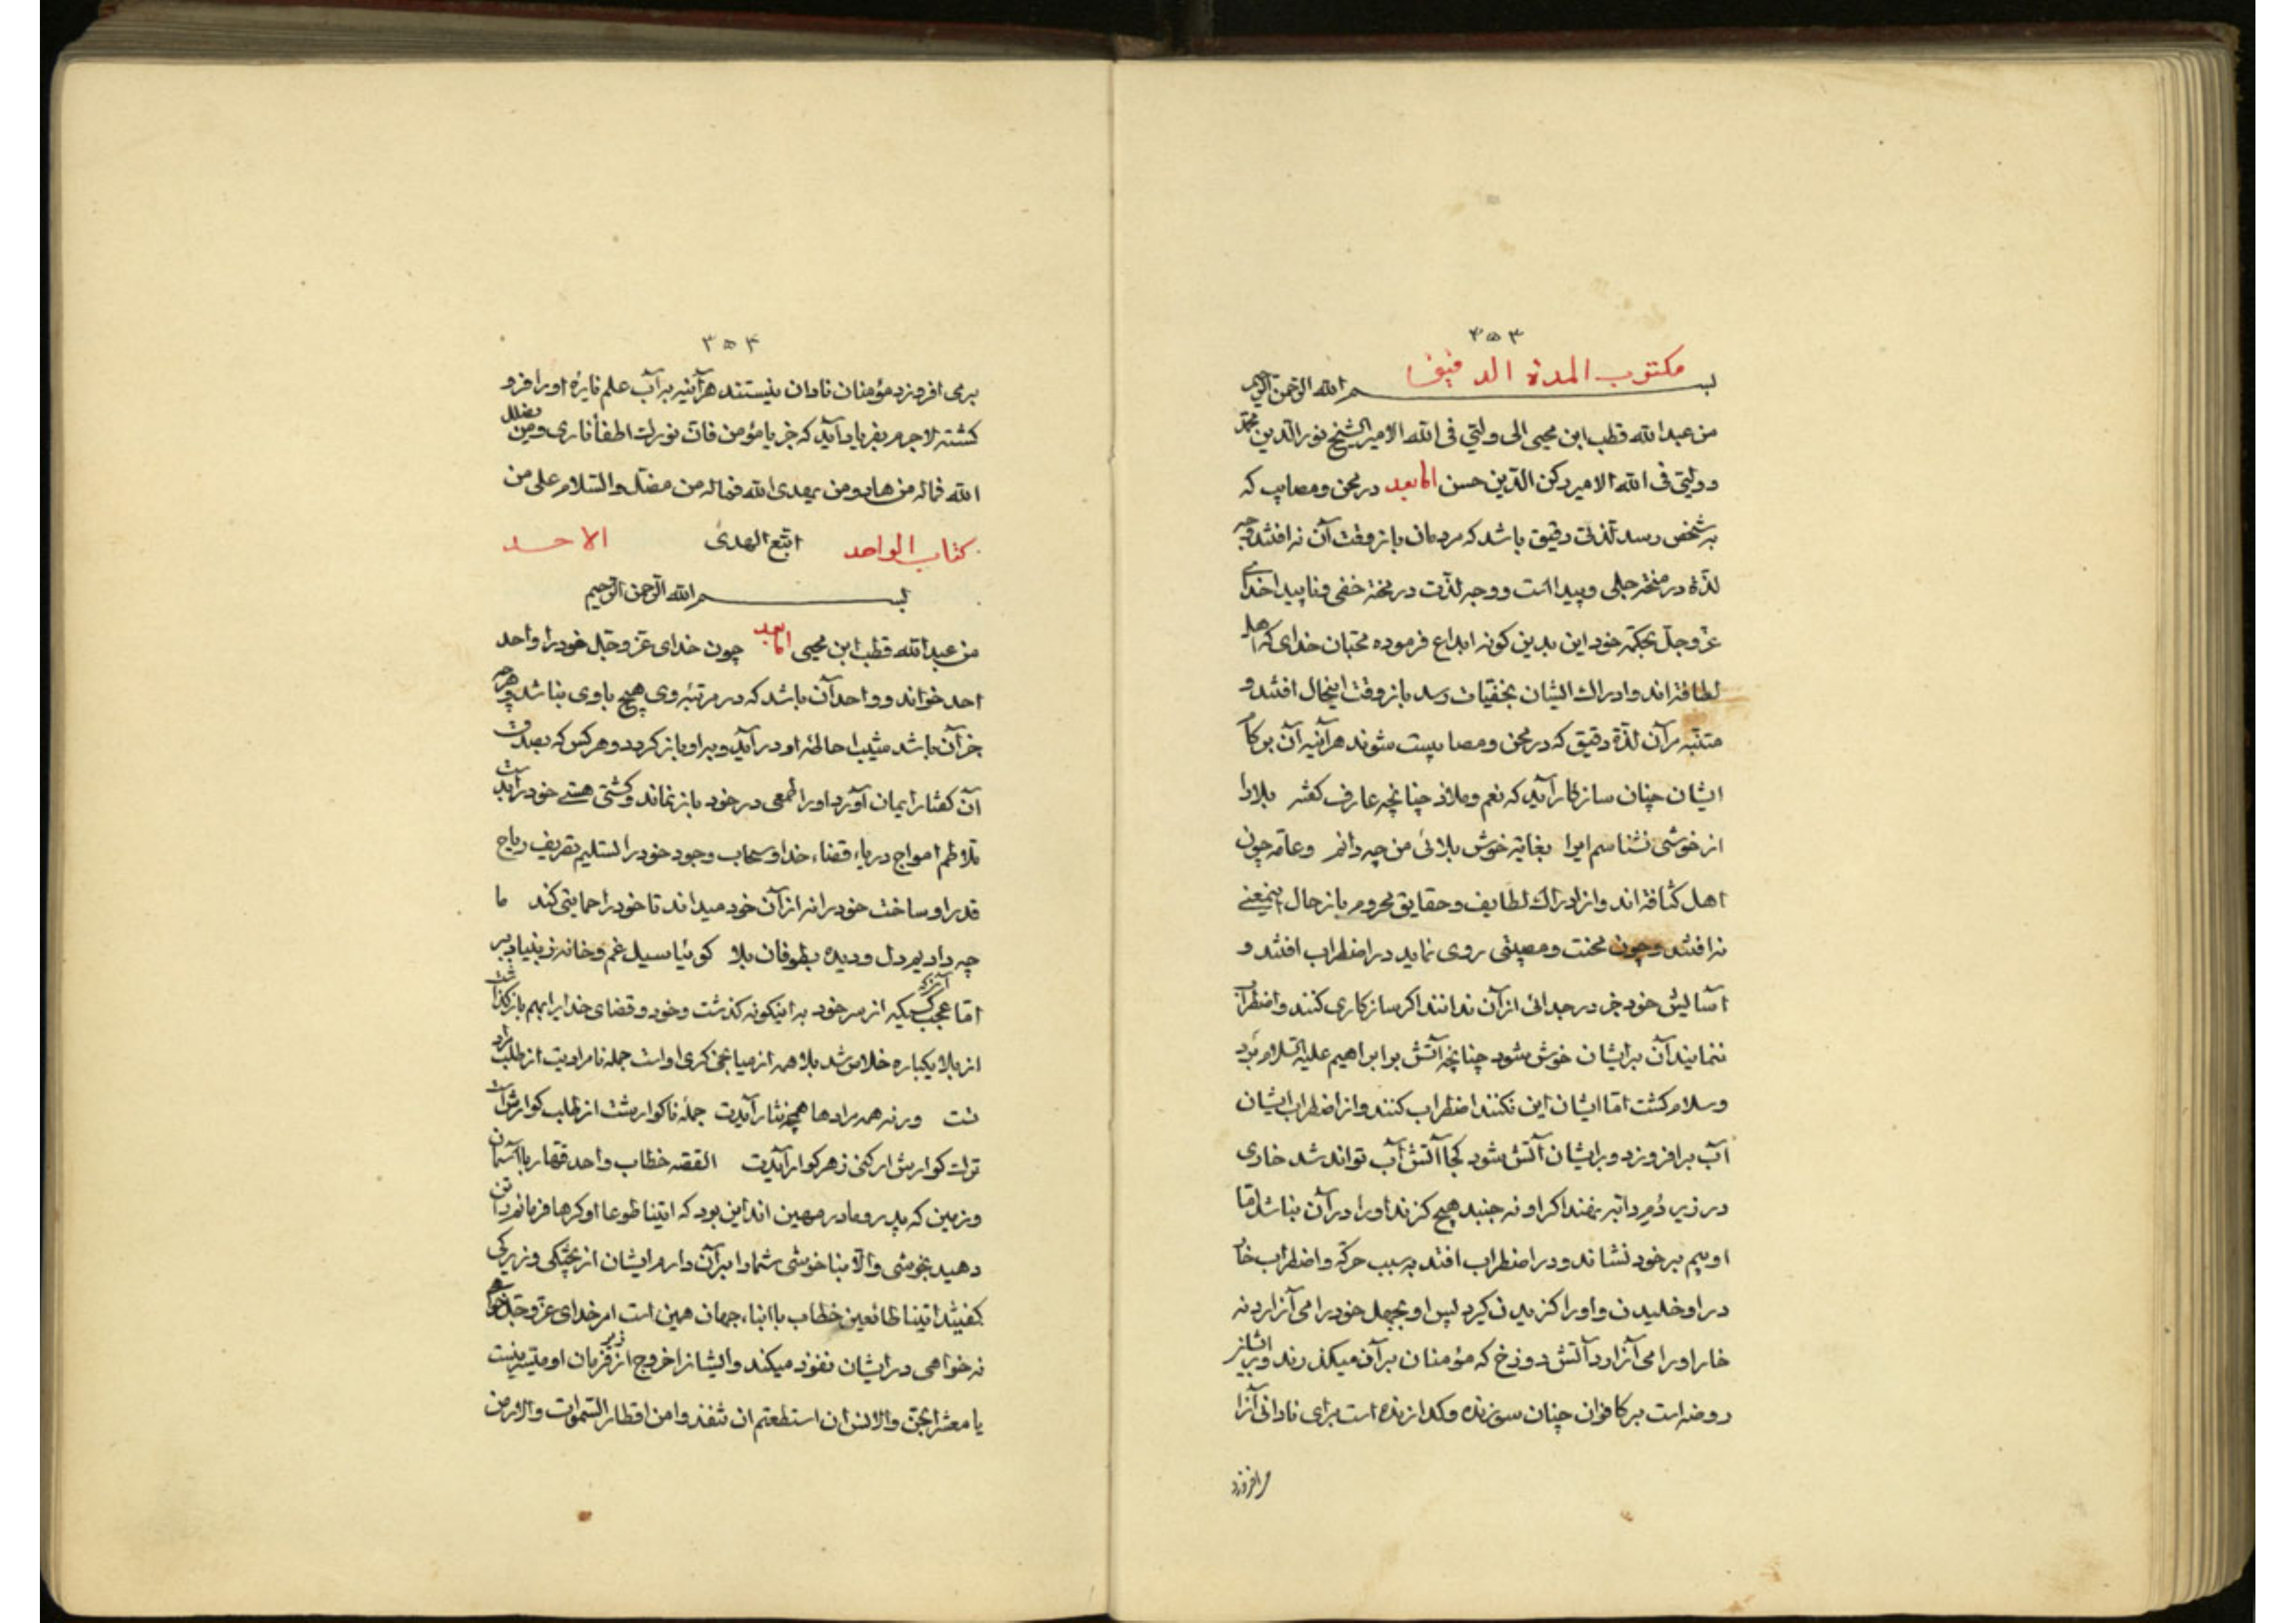 ۳۵۳
مکتوب المدة الدقیق
بسم الله الرحمن الرحیم
من عبد الله قطب ابن محیی الی ولتی فی الله الامیر الشیخ نور الدین محمد
و ولیتی فی الله الامیر رکن الدین حسن اما بعد در محن و مصایب که
به شخص رسد لذتی دقیق باشد که مردمان باز وقت آن نه افتند وجه
لذة در منحة جلی و پیدا است و وجه لذت در محنة خفی و ناپیدا خدای
عز و جل بحکمة خود این بدین کونه ابداع فرموده محبان خدای که اهل
لطافة اند و ادراک ایشان بخفیات رسد باز وقت اینحال افتند و
متنبه بر آن لذة دقیق که در محن و مصایبست شوند هرآینه آن بر کام
ایشان چنان سازکار آید که نعم و ملاذ چنانچه عارف کفته بلا را
از خوشی نشناسم ایرا بغایة خوش بلائی من چه دانم و عامه چون
اهل کثافة اند و از ادراک لطایف و حقایق محروم باز حال اینمعنی
نه افتند و چون محنت و مصیبتی روی نماید در اضطراب افتند و
آسایش خود جز در جدائی از آن ندانند اکر سازکاری کنند و اضطراب
ننمایند آن بر ایشان خوش شود چنانچه آتش بر ابراهیم علیه السلام برد
و سلام کشت اما ایشان این نکنند اضطراب کنند و از اضطراب ایشان
آب برافروزد و بر ایشان آتش شود کجا آتش آب تواند شد خاری
در زیر دم دابه نهند اکر او نه جنبد هیچ کزند او را در آن نباشد اما
او بیم بر خود نشاند و در اضطراب افتد به سبب حرکة و اضطراب خار
در او خلیدن و او را کزیدن کیرد پس او بجهل خود را می آزارد نه
خار او را می آزارد آتش دوزخ که مؤمنان بر آن میکذرند و بر ایشان
روضه است بر کافران چنان سوزنده و کدازنده است برای نادانی آنرا
برافروزد
۳۵۴
برمی افروزد مؤمنان نادان نیستند هرآینه به آب علم نایره او را فرو
کشته لاجرم بفریاد آید که جز یا مؤمن فان نورک اطفأ ناری و من یضلل
الله فما له من هاد و من یهدی الله فما له من مضل والسلام علی من
کتاب الواحد اتبع الهدی الاحد
بسم الله الرحمن الرحیم
من عبد الله قطب ابن محیی اما بعد چون خدای عز و جل خود را واحد
احد خواند و واحد آن باشد که در مرتبه وی هیچ باوی نباشد و هرچه
جز آن باشد در آید و به او باز کردد و هر کس که بصدق
آن کفتار ایمان آورد او را طمعی در خود باز نماند و کشتی هستی خود را بدست
تلاطم امواج دریاء قضاء خدا و سحاب وجود خود را تسلیم تصریف ریاح
قدر او ساخت خود را نه از آن خود میداند تا خود را حمایتی کند ما
چه دادیم دل و دیده بطوفان بلا کو بیا سیل غم و خانه ز بنیاد ببر
اما عجب آنکه کسیکه از سر خود به اینکونه کذشت و خود و قضای خدا را بهم باز کذاشت
از بلا یکباره خلاص شد بلا همه از میانجی کری او است جمله نامرادیت از طلب مراد
تست ورنه همه مرادها همچو نثار آیدت جمله ناکوارشت از طلب کوارش است
ترک کوارش ار کنی زهر کوار آیدت القصه خطاب واحد قهار با آسمان
و زمین که پدر و مادر مهین اند این بود که ائتیا طوعا او کرها فرمانم را تن
دهید بخوشی و الا بناخوشی شما را بر آن دارم ایشان از پختکی و زیرکی
کفتند اتینا طائعین خطاب با ابناء جهان همین است امر خدای عز و جل خواهی
نه خواهی در ایشان نفوذ میکند و ایشان را خروج از زیر فرمان او میسر نیست
یا معشر الجن والانس ان استطعتم ان تنفذوا من اقطار السموات والارض